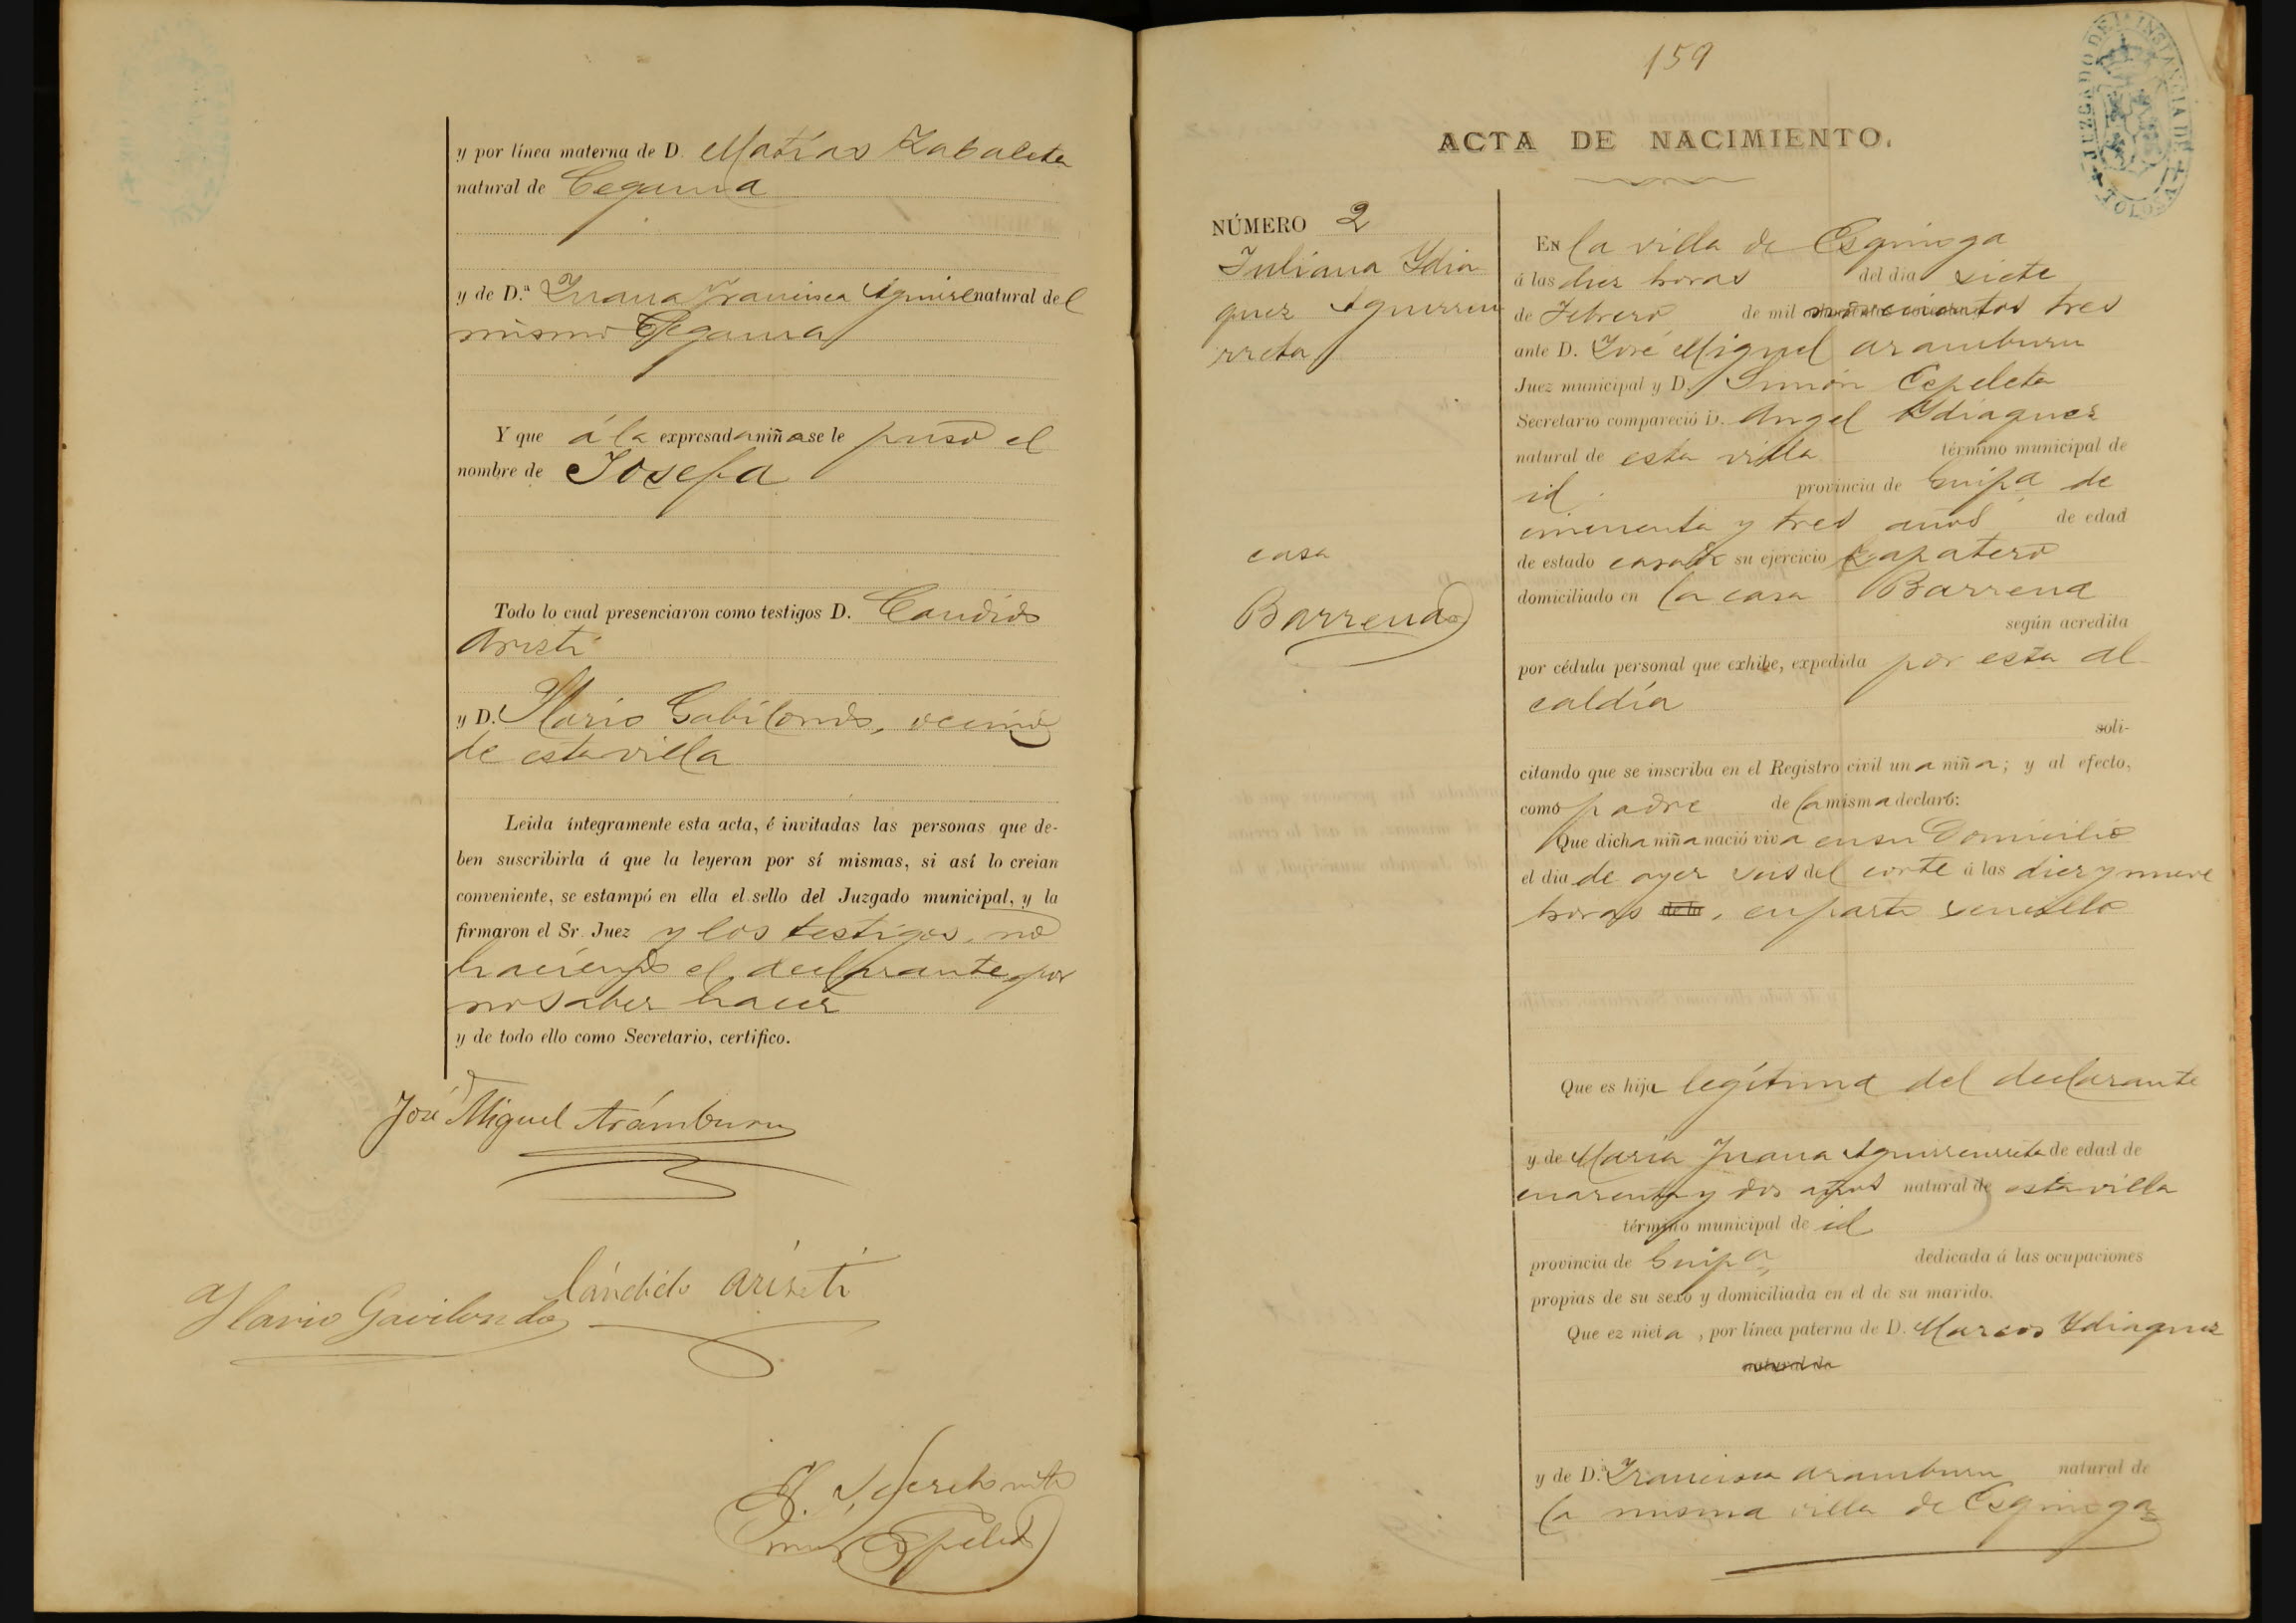 y por línea materna de D. Matías Zabaleta
natural de Cegama
y de D.ª Juana Francisca Aguirre natural del
mismo Cegama
Y que á la expresada niña se le puso el
nombre de Josefa
Todo lo cual presenciaron como testigos D. Candido
Aristi
y D. Ylario Gabilondo, vecino
de esta villa
Leida íntegramente esta acta, é invitadas las personas que de-
ben suscribirla á que la leyeran por sí mismas, si así lo creian
conveniente, se estampó en ella el sello del Juzgado municipal, y la
firmaron el Sr. Juez y los testigos, no
haciendo el declarante por
no saber hacer
y de todo ello como Secretario, certifico.
José Miguel Arámburu
Cándido Aristi
Ylario Gavilondo
Simón Ezpeleta
159
JUZGADO DE 1.ª INSTANCIA DE TOLOSA
ACTA DE NACIMIENTO.
NÚMERO 2
Juliana Ydia
quez Agurreu
rreta
casa
Barrena
EN la villa de Ezquioga
á las diez horas del dia siete
de Febrero de mil novecientos tres
ante D. José Miguel Aramburu
Juez municipal y D. Simón Ezpeleta
Secretario compareció D. Angel Ydiaquez
natural de esta villa término municipal de
id provincia de Guip.a de
cincuenta y tres años de edad
de estado casado su ejercicio zapatero
domiciliado en la casa Barrena
según acredita
por cédula personal que exhibe, expedida por esta al
caldía
soli-
citando que se inscriba en el Registro civil una niña; y al efecto,
como padre de la misma declaró:
Que dicha niña nació viva en su domicilio
el dia de ayer seis del corte á las diez y nueve
horas de la, en parto sencillo
Que es hija legítima del declarante
y de María Juana Aguirreurreta de edad de
cuarenta y dos años natural de esta villa
término municipal de id
provincia de Guip.a dedicada á las ocupaciones
propias de su sexo y domiciliada en el de su marido.
Que ez nieta, por línea paterna de D. Marcos Ydiaquez
natural de
y de D.ª Francisca Aramburu natural de
la misma villa de Ezquioga